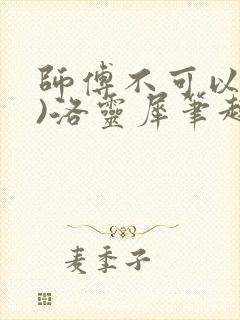 師傅不可以
)洛靈犀筆趣
麦季子